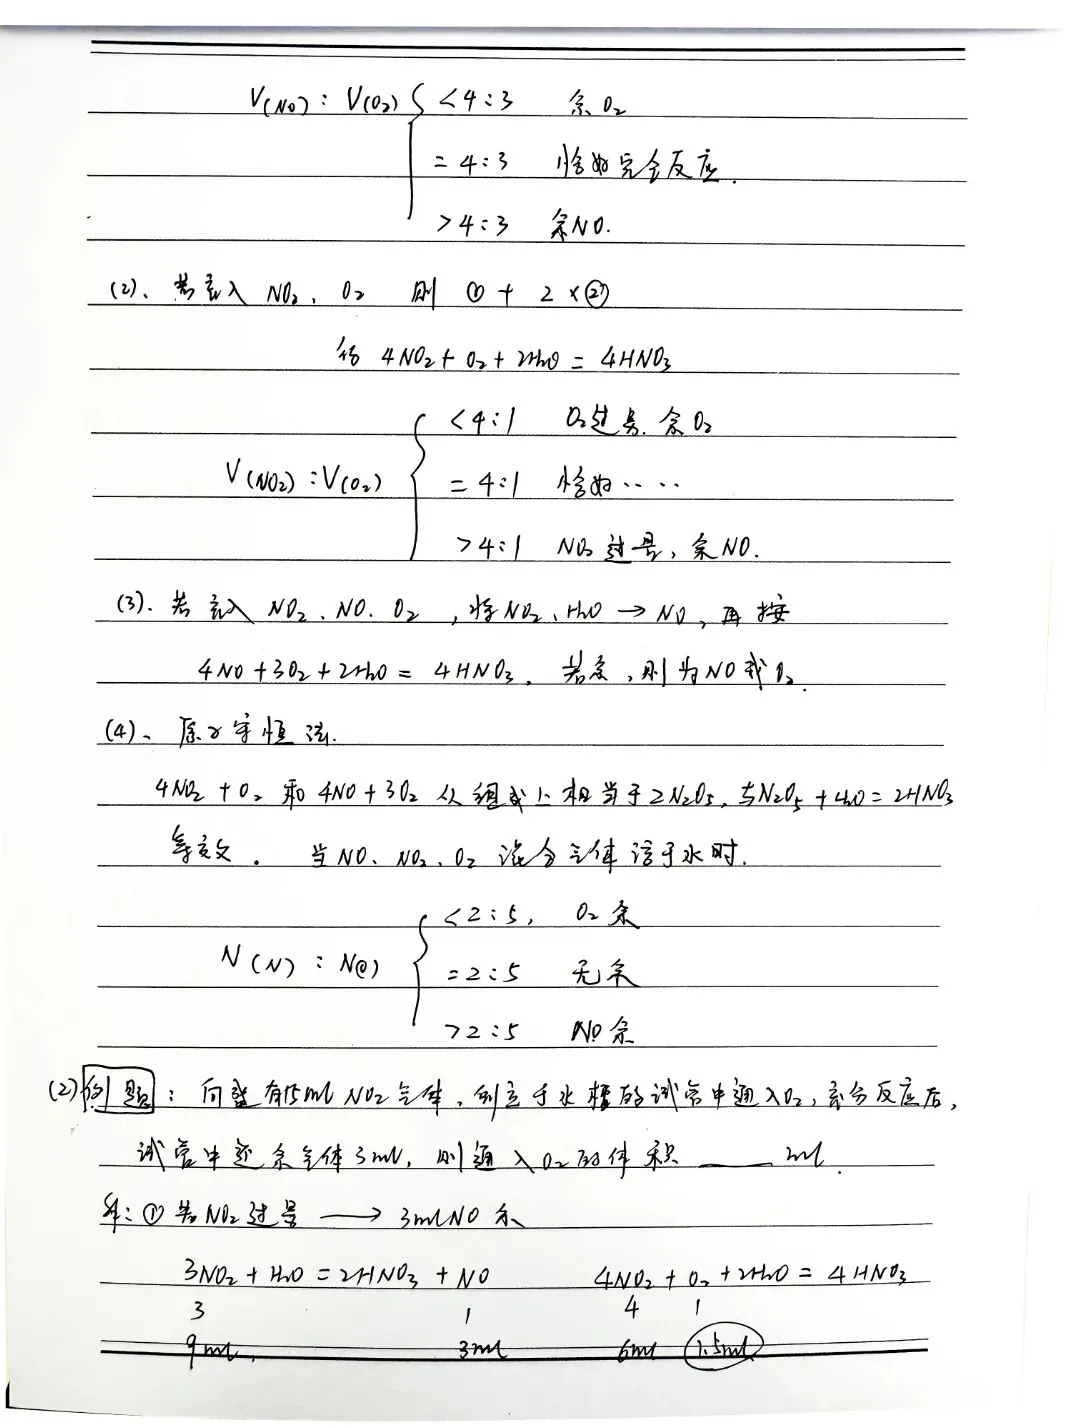 V(NO) : V(O₂) { < 4:3 余O₂
= 4:3 恰好完全反应.
> 4:3 余NO.
(2)、若充入 NO₂、O₂ 则 ① + 2×②
得 4NO₂ + O₂ + 2H₂O = 4HNO₃
< 4:1 O₂过量. 余O₂
V(NO₂) : V(O₂) { = 4:1 恰好‥‥
> 4:1 NO₂过量, 余NO.
(3)、若充入 NO₂、NO、O₂, 将NO₂、H₂O → NO, 再按
4NO + 3O₂ + 2H₂O = 4HNO₃. 若余, 则为NO或O₂.
(4)、原子守恒法.
4NO₂ + O₂ 和 4NO + 3O₂ 从组成上相当于2N₂O₅, 与N₂O₅ + H₂O = 2HNO₃
等效. 当NO、NO₂、O₂ 混合气体溶于水时.
< 2:5, O₂余
N(N) : N(O) { = 2:5 无余
> 2:5 NO余
(2) 例题: 向盛有15ml NO₂气体, 倒立于水槽的试管中通入O₂, 充分反应后,
试管中还余气体3ml, 则通入O₂的体积 ____ ml.
解: ① 若NO₂过量 → 3mlNO余
3NO₂ + H₂O = 2HNO₃ + NO 4NO₂ + O₂ + 2H₂O = 4HNO₃
3 1 4 1
9ml, 3ml 6ml 1.5ml